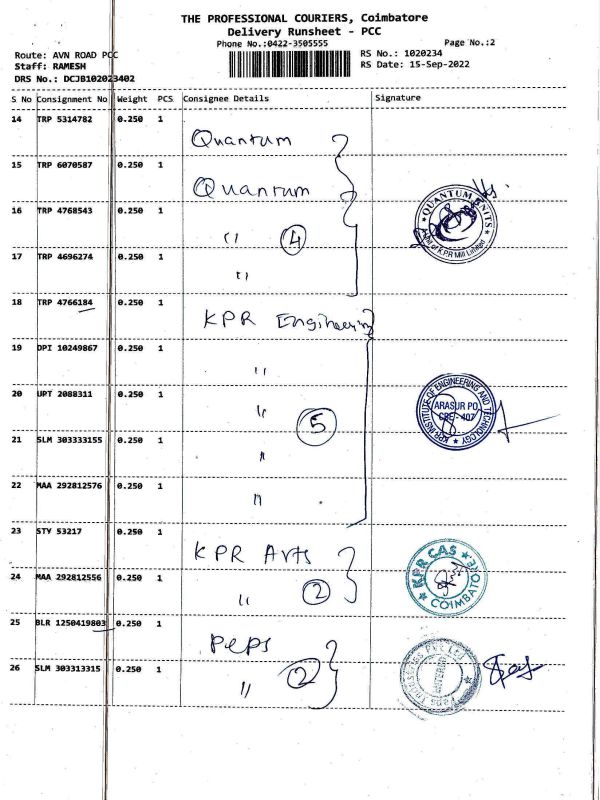 THE PROFESSIONAL COURIERS, Coimbatore
Delivery Runsheet - PCC
Phone No.:0422-3505555 Page No.:2
Route: AVN ROAD PCC RS No.: 1020234
Staff: RAMESH RS Date: 15-Sep-2022
DRS No.: DCJB102023402
S No Consignment No Weight PCS Consignee Details Signature
14 TRP 5314782 0.250 1 Quantum
15 TRP 6070587 0.250 1 Quantum
16 TRP 4768543 0.250 1 " 4
17 TRP 4696274 0.250 1 "
QUANTUM KNITS
A Unit of K.P.R Mill Limited
18 TRP 4766184 0.250 1 KPR Engineering
19 DPI 10249867 0.250 1 "
20 UPT 2088311 0.250 1 " 5
21 SLM 303333155 0.250 1 "
22 MAA 292812576 0.250 1 "
KPR INSTITUTE OF ENGINEERING AND TECHNOLOGY
ARASUR PO
CBE - 407
23 STY 53217 0.250 1 KPR Arts
24 MAA 292812556 0.250 1 " 2
KPR CAS
COIMBATORE
25 BLR 1250419803 0.250 1 Peps
26 SLM 303313315 0.250 1 " 2